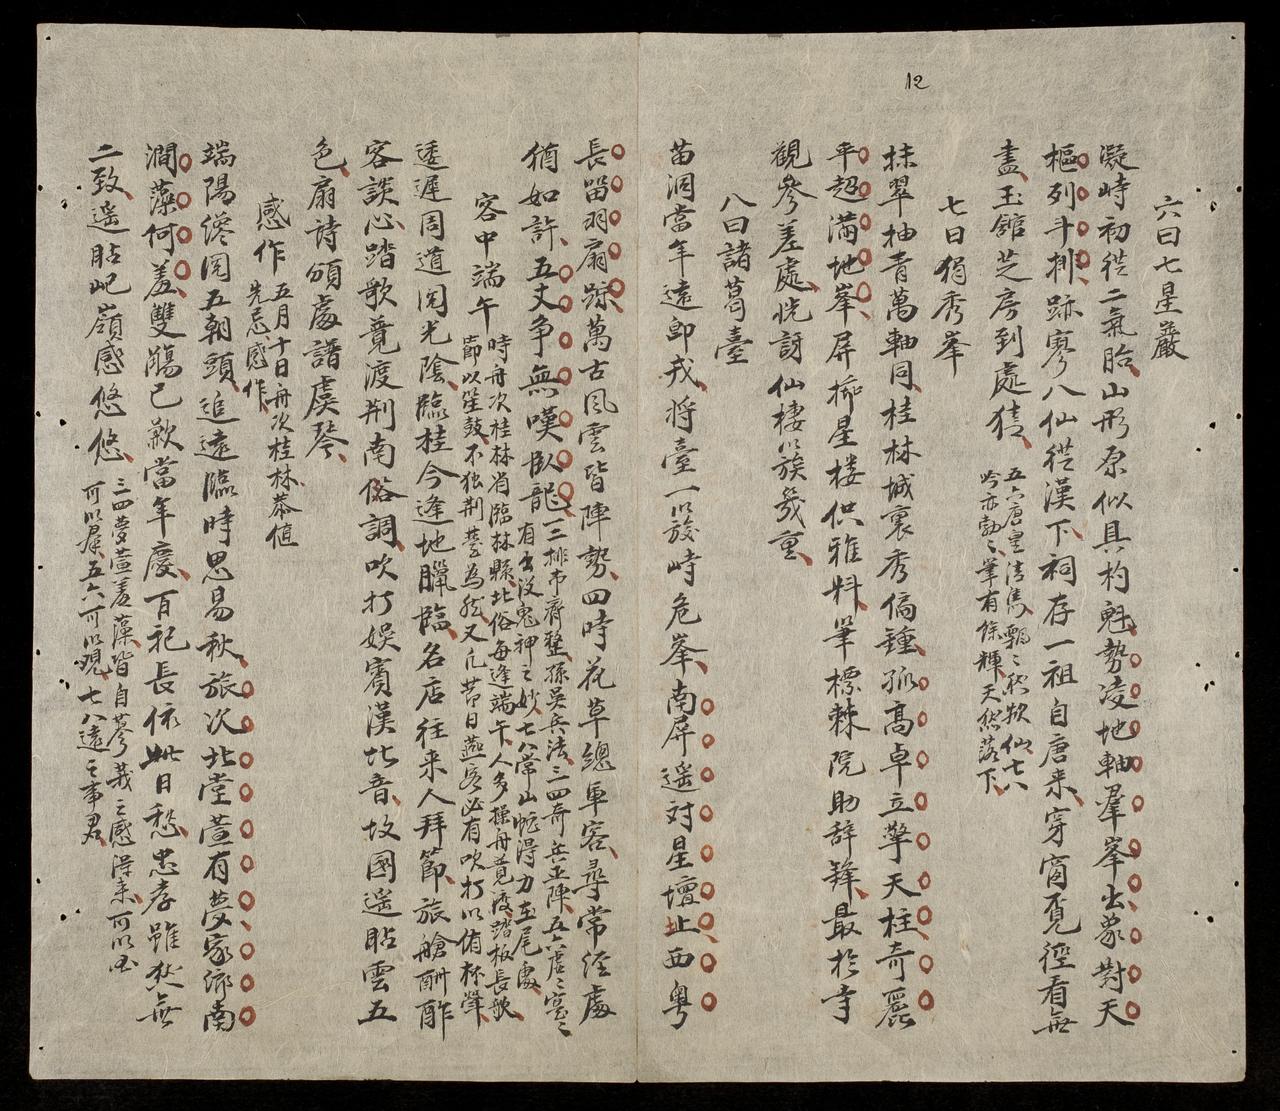 12
六曰七星巖
凝峙初從二氣胎山形原似具杓魁勢凌地軸羣峯出象對天
樞列斗排跡寥八仙從漢下祠存一祖自唐来穿窗覓徑看無
盡玉館芝房到處猜
五六唐皇清雋飄〻然欲仙七八
吟亦勃〻筆有餘輝天然落下
七曰獨秀峯
抹翠抽青萬軸同桂林城裏秀偏鍾孤高卓立擎天柱奇麗
平超滿地峯屏擁星楼供雅料筆標棘院助辞鋒最於寺
觀參差處恍訝仙棲以族幾重
八曰諸葛臺
苗洞當年遠即戎將臺一以旋峙危峯南屏遥对星壇址西粤
長留羽扇踪萬古風雲皆陣勢四時花草總軍容尋常經處
猶如許五丈争無嘆臥龍
一二排布齊整孫吳兵法三四奇兵正陣五六虚〻寔〻
有出没鬼神之妙七八常山蛇得力在尾處
客中端午
時舟次桂林省臨林縣北俗每逢端午人多操舟競渡踏板長歌
節以笙鼓不独荆楚為然又凢節日燕客必有吹打以侑杯觴
逶遲周道閲光陰臨桂今逢地臘臨名店往来人拜節旅艙酬酢
客談心踏歌競渡荆南俗調吹打娯賓漢北音故國遥瞻雲五
色扇詩頒處譜虞琴
感作
五月十日舟次桂林恭值
先忌感作
端陽纔罔五朝頭追遠臨時思易秋旅次北堂萱有夢家鄉南
澗藻何羞雙觴已歉當年慶百祀長依此日愁忠孝雖然無
二致遥瞻屺嶺感悠悠
三四夢萱羞藻皆自蓼莪之感得来可以
可以羣五六可以覌七八遠之事君